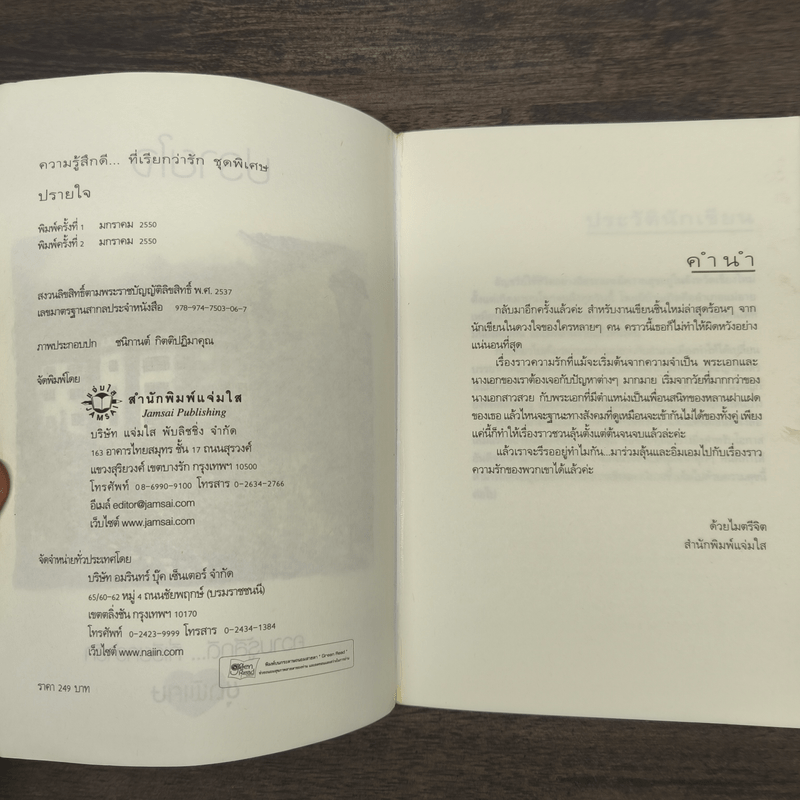 ความรู้สึกดี... ที่เรียกว่ารัก ชุดพิเศษ
ปรายใจ
พิมพ์ครั้งที่ 1 มกราคม 2550
พิมพ์ครั้งที่ 2 มกราคม 2550
สงวนลิขสิทธิ์ตามพระราชบัญญัติลิขสิทธิ์ พ.ศ. 2537
เลขมาตรฐานสากลประจำหนังสือ 978-974-7503-06-7
ภาพประกอบปก ชนิกานต์ กิตติปฏิมาคุณ
จัดพิมพ์โดย
สำนักพิมพ์แจ่มใส
Jamsai Publishing
บริษัท แจ่มใส พับลิชชิ่ง จำกัด
163 อาคารไทยสมุทร ชั้น 17 ถนนสุรวงศ์
แขวงสุริยวงศ์ เขตบางรัก กรุงเทพฯ 10500
โทรศัพท์ 08-6990-9100 โทรสาร 0-2634-2766
อีเมล์ editor@jamsai.com
เว็บไซต์ www.jamsai.com
จัดจำหน่ายทั่วประเทศโดย
บริษัท อมรินทร์ บุ๊ค เซ็นเตอร์ จำกัด
65/60-62 หมู่ 4 ถนนชัยพฤกษ์ (บรมราชชนนี)
เขตตลิ่งชัน กรุงเทพฯ 10170
โทรศัพท์ 0-2423-9999 โทรสาร 0-2434-1384
เว็บไซต์ www.naiin.com
Green Read
ราคา 249 บาท
คำนำ
กลับมาอีกครั้งแล้วค่ะ สำหรับงานเขียนชิ้นใหม่ล่าสุดร้อนๆ จาก
นักเขียนในดวงใจของใครหลายๆ คน คราวนี้เธอก็ไม่ทำให้ผิดหวังอย่าง
แน่นอนที่สุด
เรื่องราวความรักที่แม้จะเริ่มต้นจากความจำเป็น พระเอกและ
นางเอกของเราต้องเจอกับปัญหาต่างๆ มากมาย เริ่มจากวัยที่มากกว่าของ
นางเอกสาวสวย กับพระเอกที่มีตำแหน่งเป็นเพื่อนสนิทของหลานฝาแฝด
ของเธอ แล้วไหนจะฐานะทางสังคมที่ดูเหมือนจะเข้ากันไม่ได้ของทั้งคู่ เพียง
แค่นี้ก็ทำให้เรื่องราวชวนลุ้นตั้งแต่ต้นจนจบแล้วล่ะค่ะ
แล้วเราจะรีรออยู่ทำไมกัน...มาร่วมลุ้นและอิ่มเอมไปกับเรื่องราว
ความรักของพวกเขาได้แล้วค่ะ
ด้วยไมตรีจิต
สำนักพิมพ์แจ่มใส